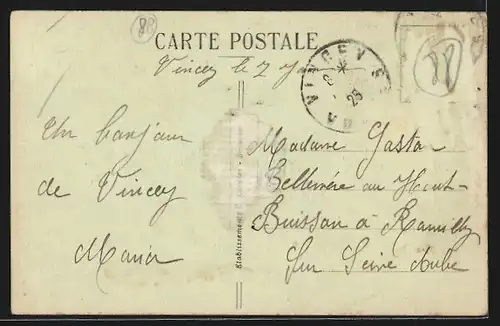 88
CARTE POSTALE
Vincey le 7
VINCEY
25
88
Un bonjour
de Vincey
Maria
Madame Gaston
au Haut-
Buisson à Romilly
Sur Seine Aube
Etablissements